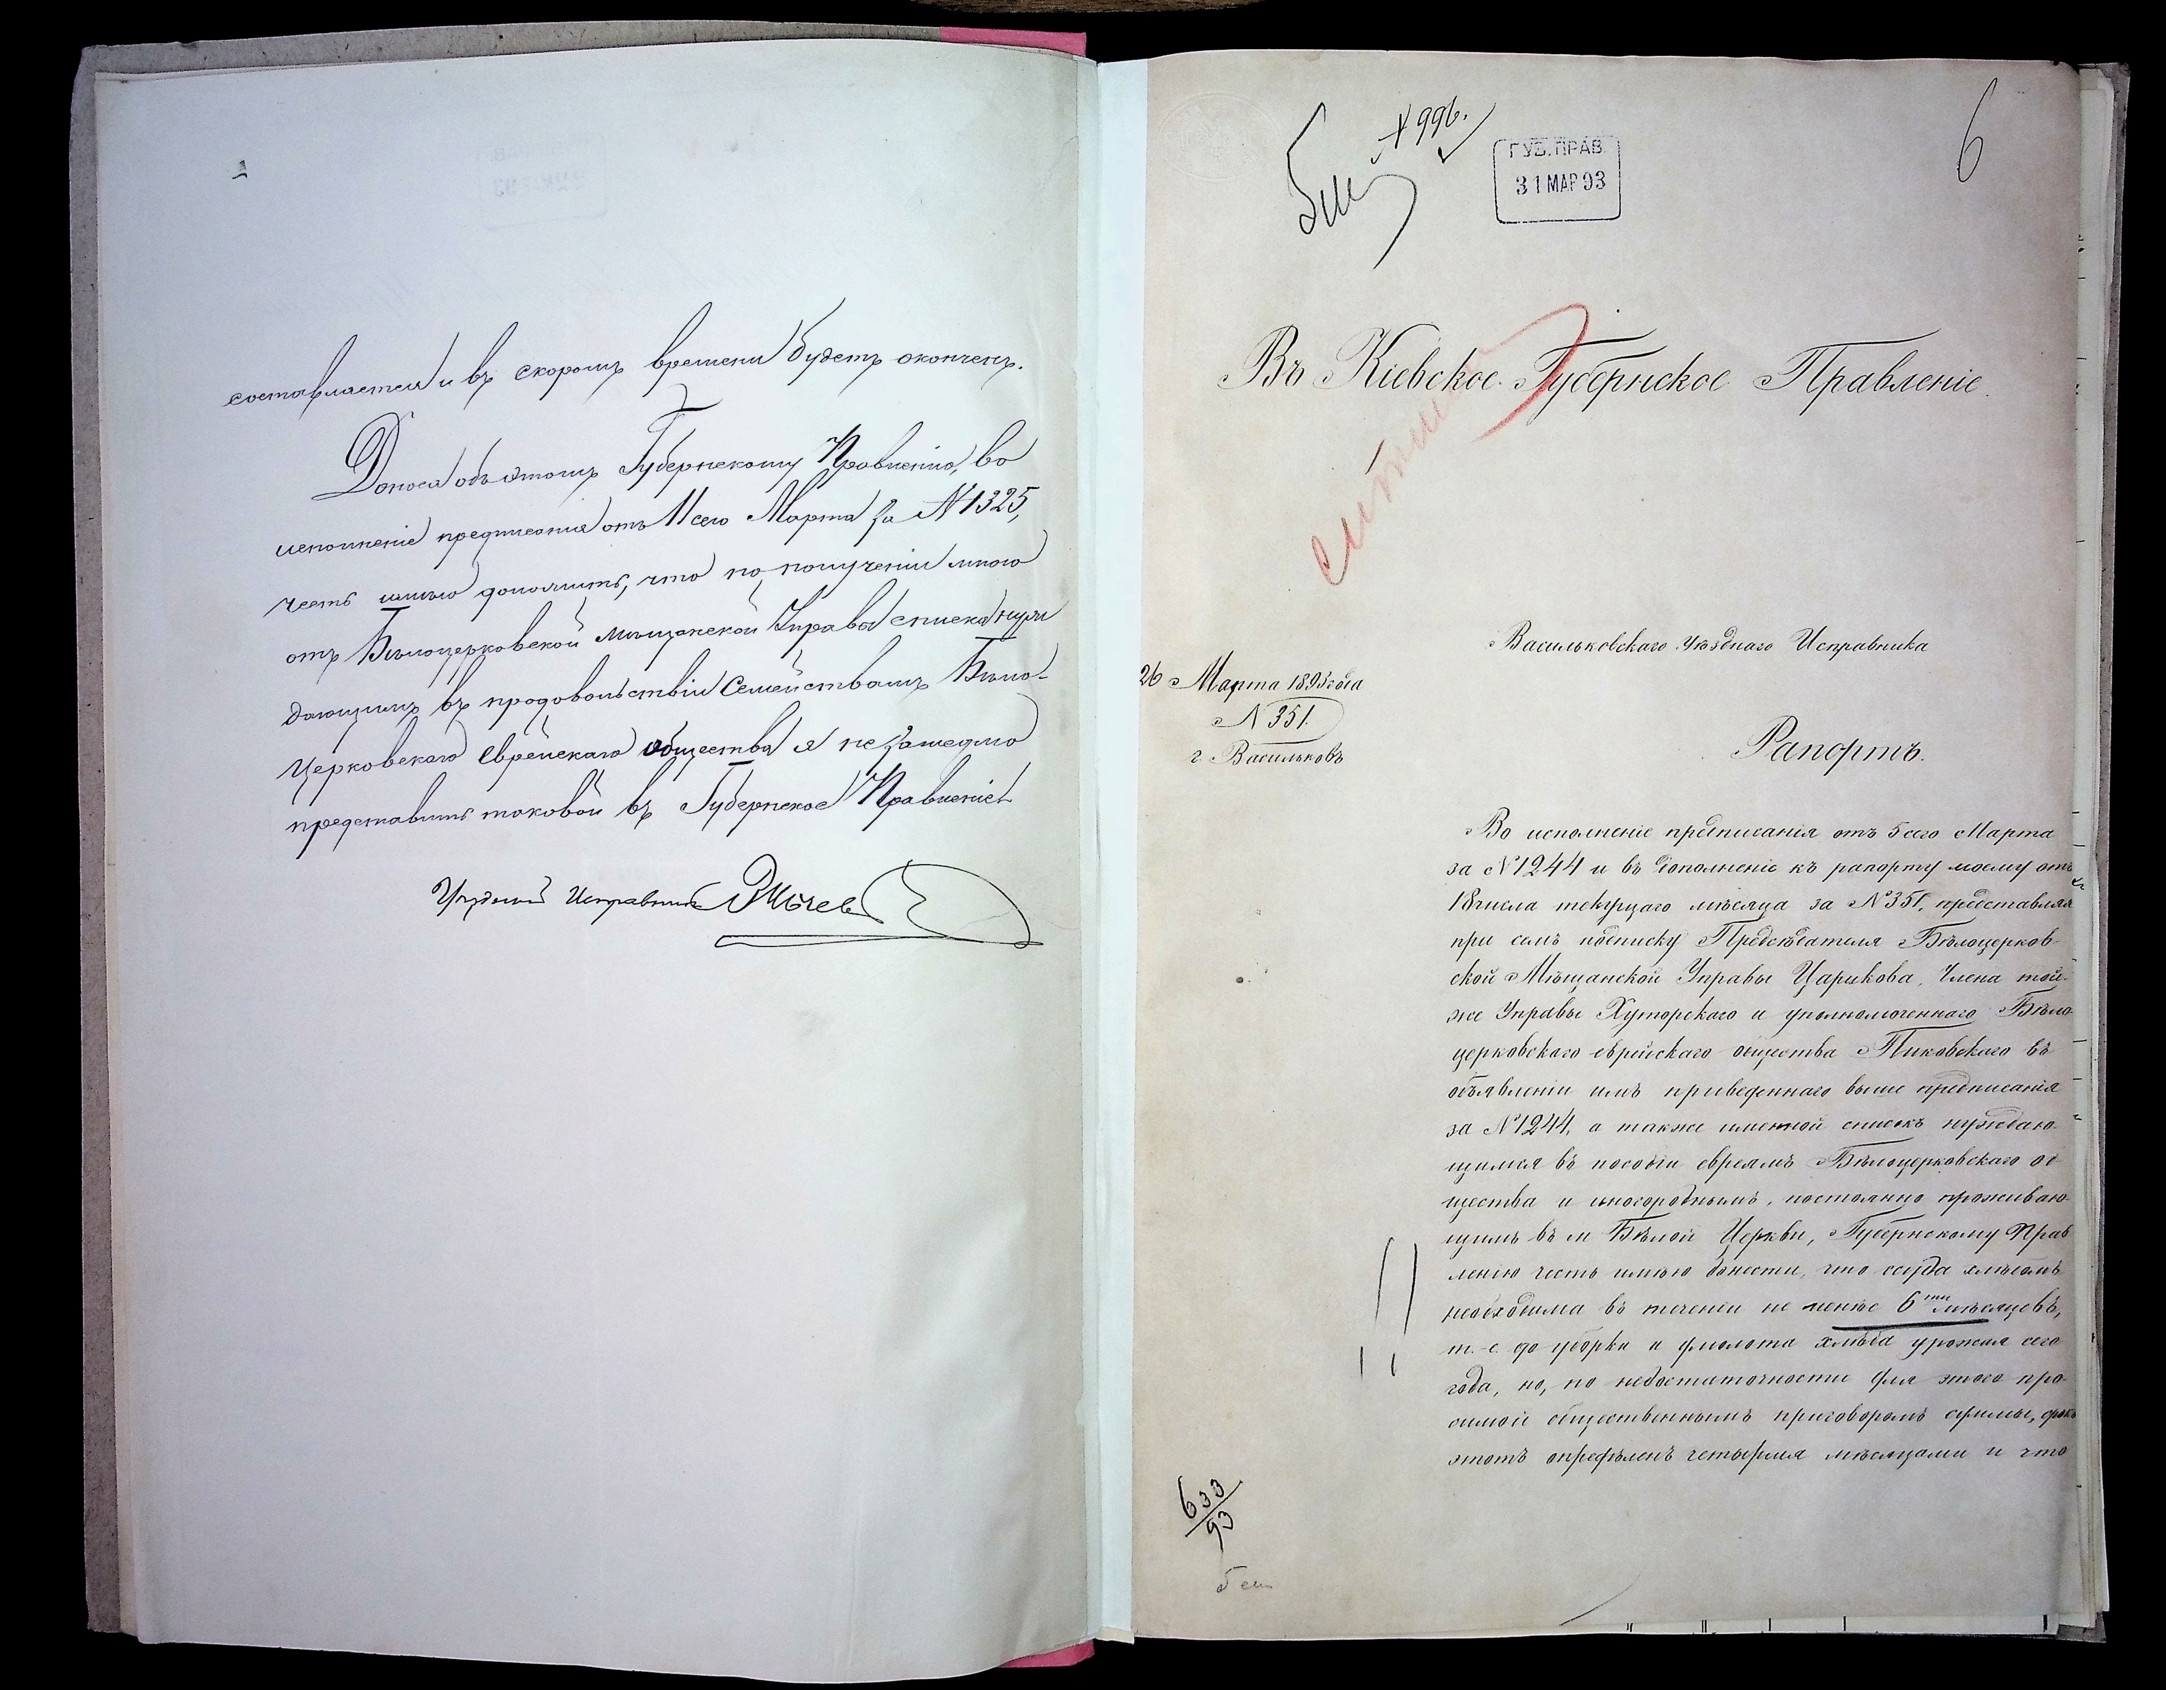 составляется и въ скоромъ времени будетъ оконченъ.
Донося объ этомъ Губернскому Правленію, во
исполненіе предписанія отъ 11 сего Марта за N 1325,
честь имѣю дополнить, что по полученіи мною
отъ Бѣлоцерковской мѣщанской Управы списка нуж
дающимъ въ продовольствіи семействамъ Бѣло-
церковского Еврейскаго общества я не замедлю
представить таковой въ Губернское Правленіе.
Уѣздный Исправникъ
6
N 996.
ГУБ. ПРАВ.
31 МАР 93
Въ Кіевское Губернское Правленіе.
Васильковскаго Уѣзднаго Исправника
26 Марта 1893 года
N 351.
г. Васильковъ
Рапортъ.
Во исполненіе предписанія отъ 5 сего Марта
за N 1244 и въ дополненіе къ рапорту моему отъ
18 числа текущаго мѣсяца за N 351, представляя
при семъ подписку Предсѣдателя Бѣлоцерков-
ской Мѣщанской Управы Царикова, Члена той-
же Управы Хуторскаго и уполномоченнаго Бѣло-
церковскаго еврейскаго общества Пиковскаго въ
объявленіи имъ приведеннаго выше предписанія
за N 1244, а также именной списокъ нуждаю-
щимся въ пособіи евреямъ Бѣлоцерковскаго об
щества и иногороднымъ, постоянно проживаю-
щимъ въ м Бѣлой Церкви, Губернскому Прав
ленію честь имѣю донести, что ссуда хлѣбомъ
необходима въ теченіи не менѣе 6ти мѣсяцевъ,
т.-е. до уборки и умолота хлѣба урожая сего
года, но, по недостаточности для этого про-
симой общественнымъ приговоромъ суммы, срокъ
этотъ опредѣленъ четырмя мѣсяцами и что
633
93